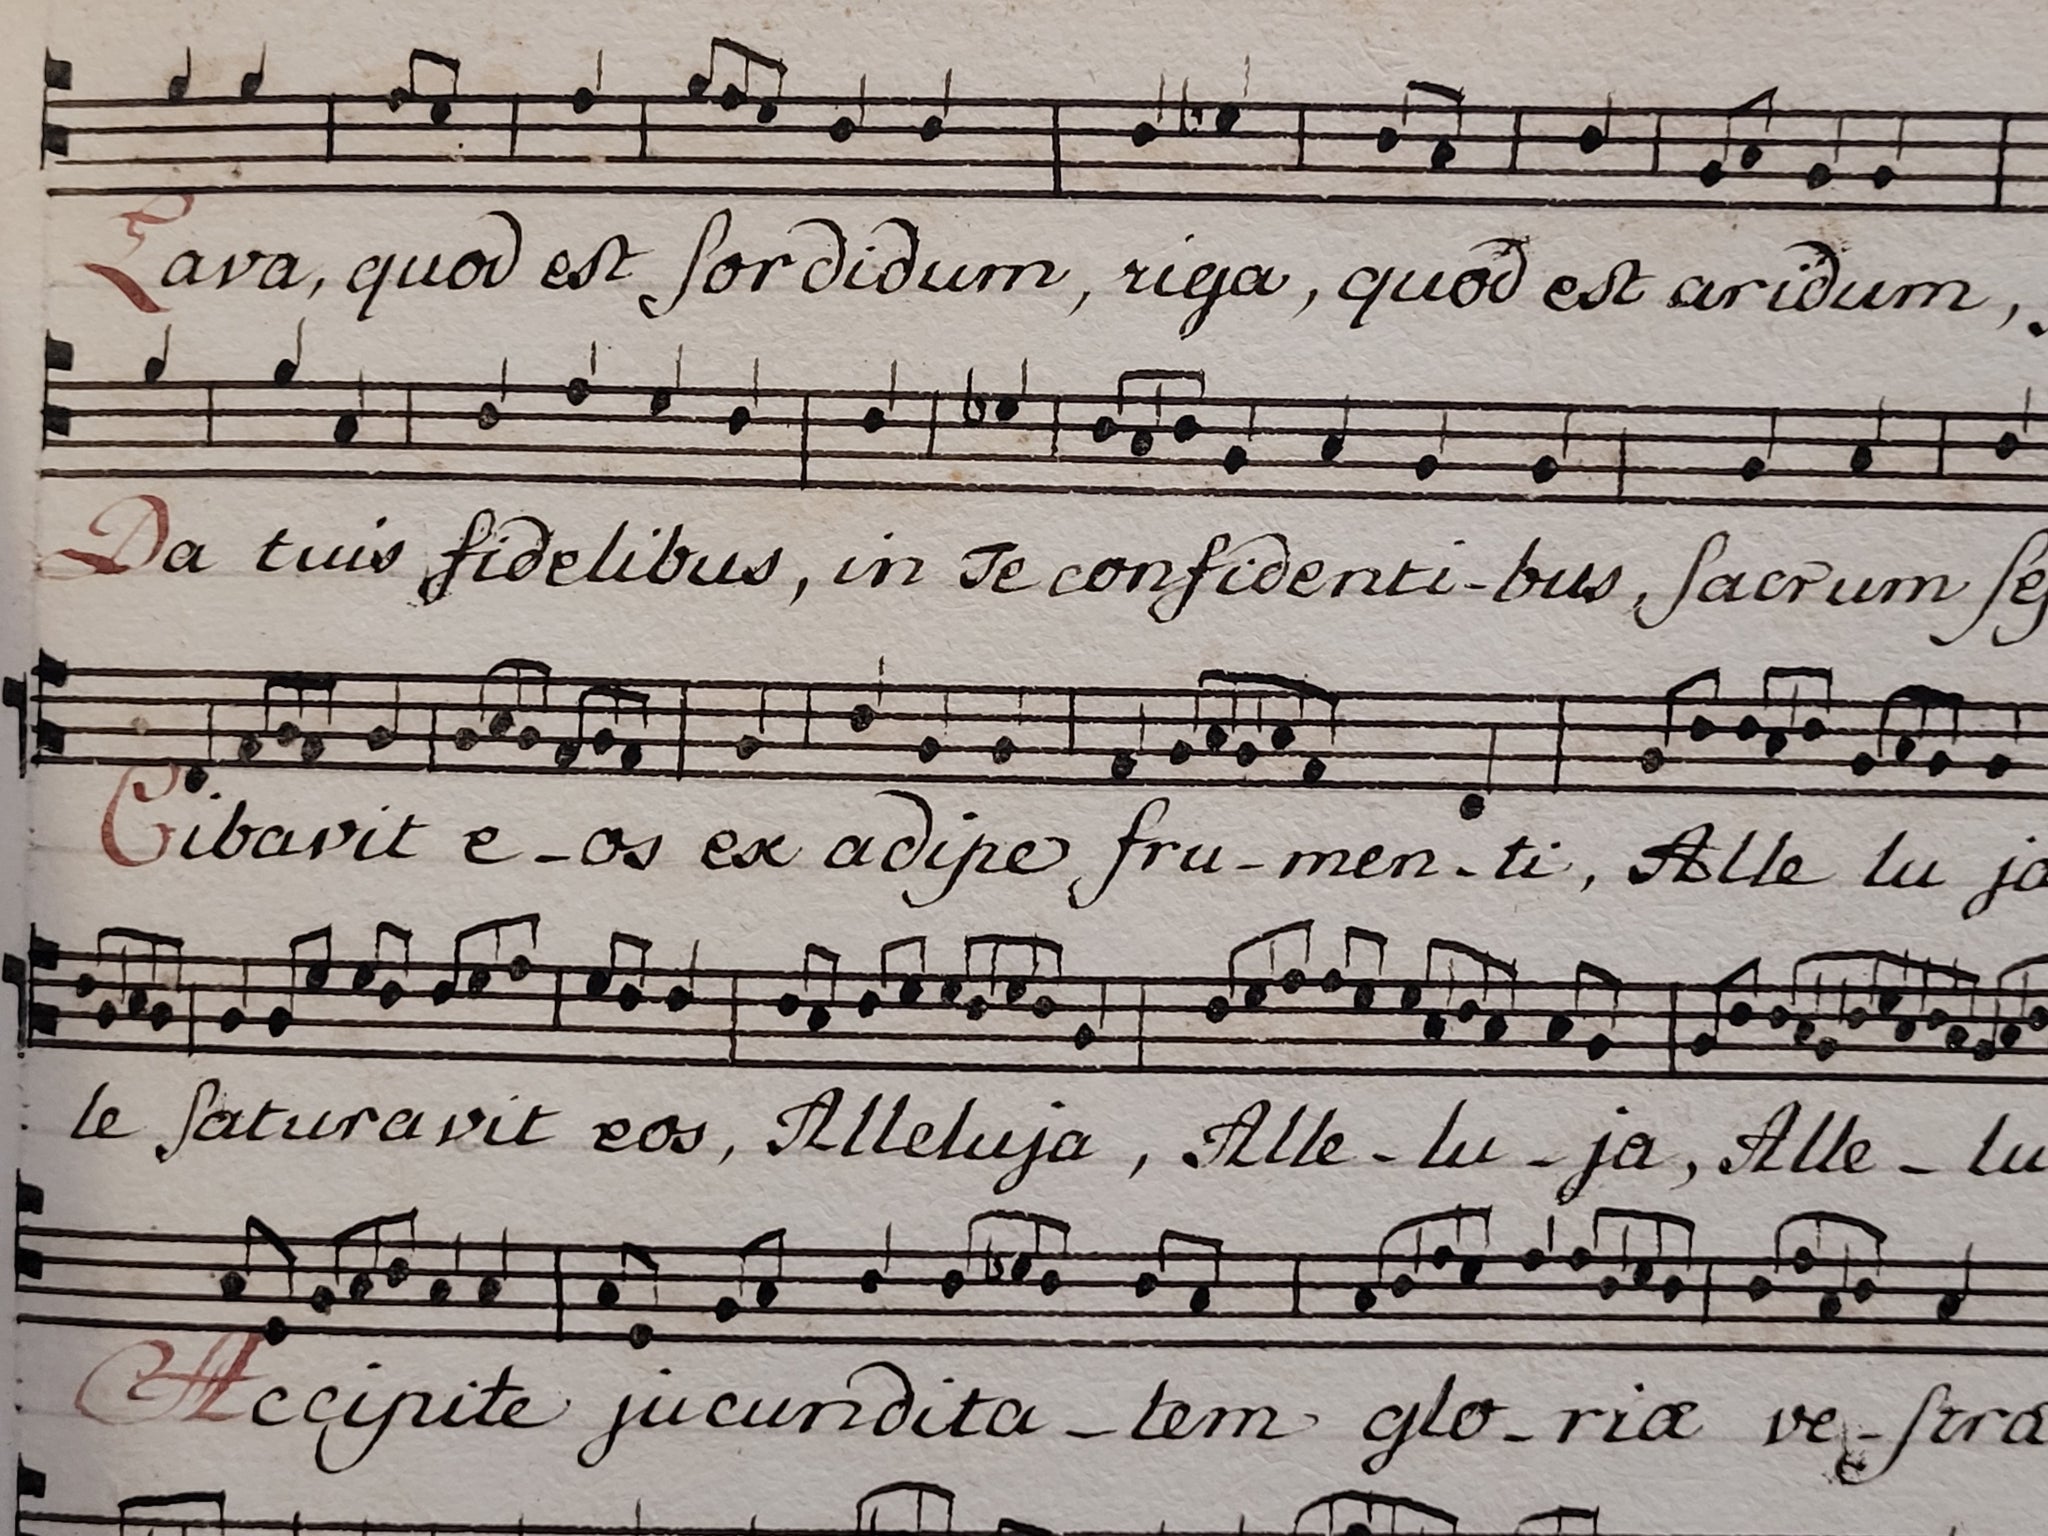 Lava, quod est sordidum, riga, quod est aridum,
Da tuis fidelibus, in Te confidenti-bus, sacrum
Cibavit e-os ex adipe fru-men-ti, Alle lu ja
le saturavit eos, Alleluja, Alle-lu-ja, Alle-lu
Accipite jucundita-tem glo-riæ ve-stra